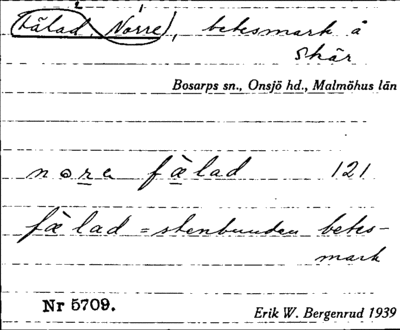 Fälad, Norre, betesmark å
skär
Bosarps sn., Onsjö hd., Malmöhus län
nore fälad 121
fälad = stenbunden betes-
mark
Nr 5709.
Erik W. Bergenrud 1939